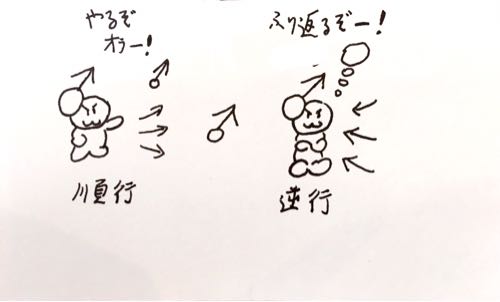 やるぞ
オラー!
ふり返るぞー!
順行
逆行